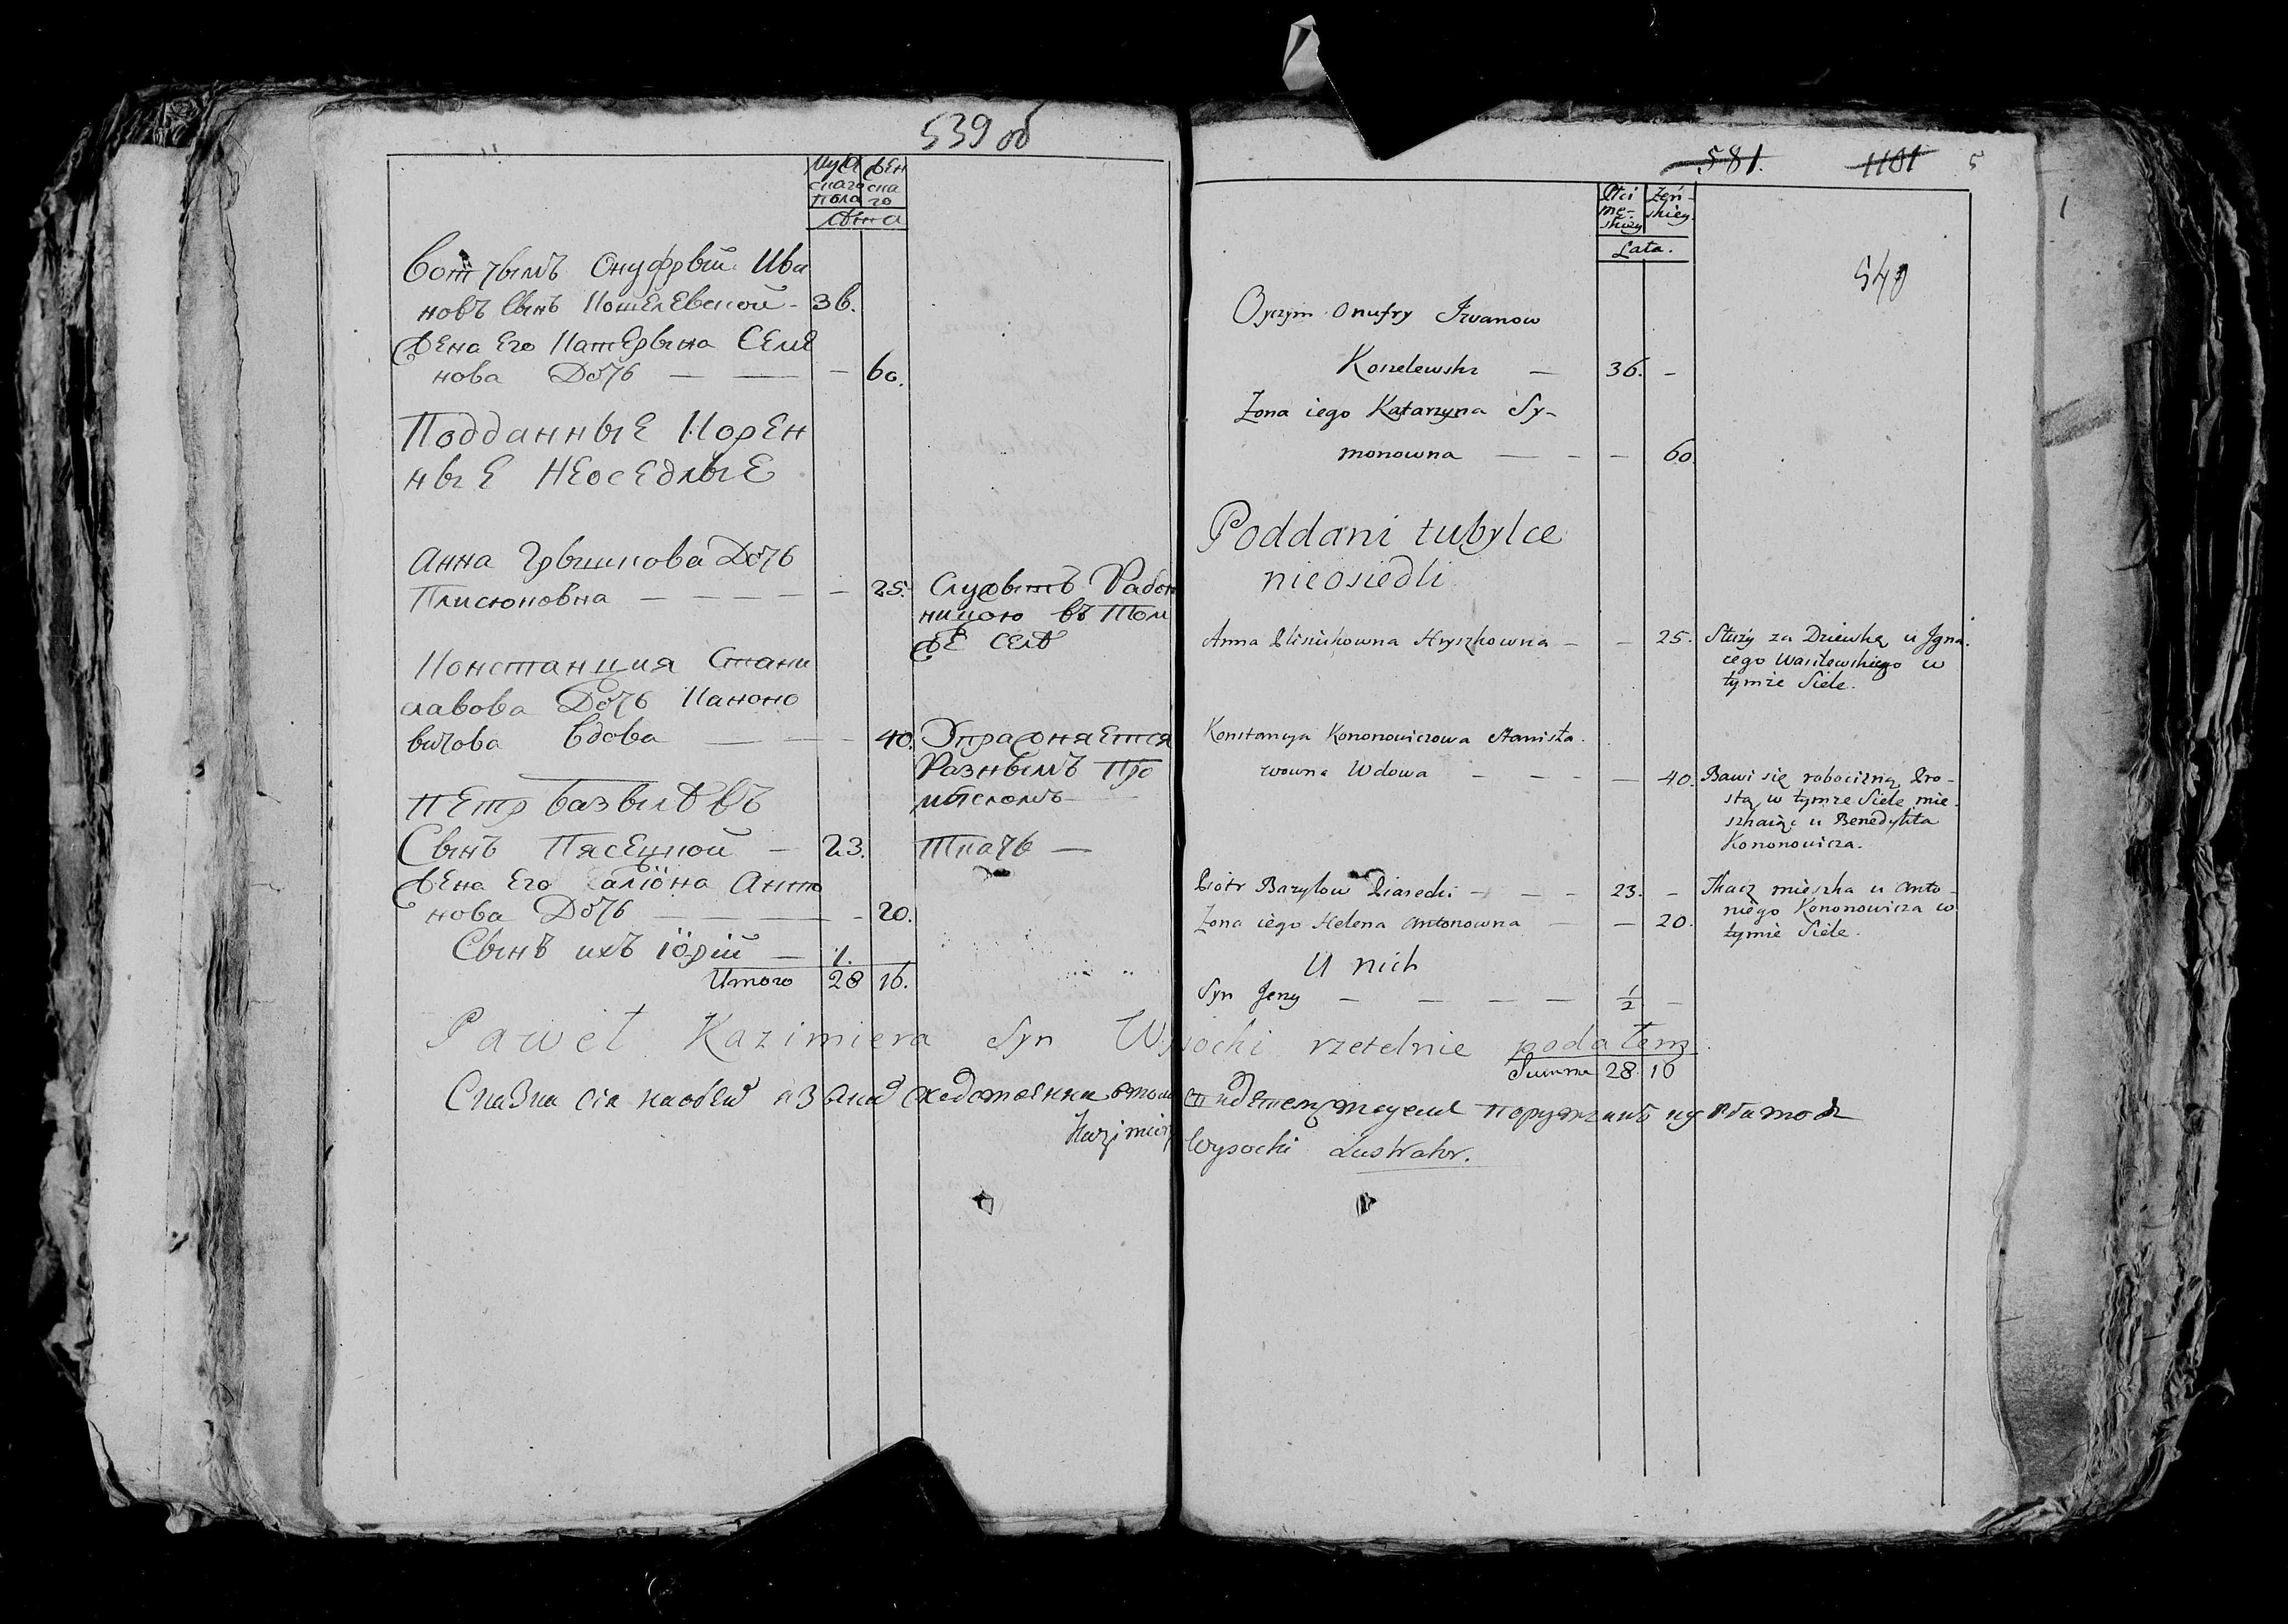 539 об
муж жен
скаго ска
пола го
лѣта
Вотчымъ Онуфрый Ива
новъ Сынъ Кошелевской - 36.
Жена Его Катерына Семе
нова Дочь — — — 60.
Подданные Корен
ные неоседлые
Анна Грышкова Дочь
Плисюковна — — — — — 25. Служытъ Работ
ницою въ Том
же селѣ
Констанция Стани
славова Дочь Каноно
вичова вдова — — — 40. Упражняется
Разнымъ Про
мысломъ
Петр Базылѣвъ
Сынъ Пясецкой — 23. Ткачь —
Жена Его Галіона Анто
нова Дочь — — — - 20.
Сынъ ихъ Іорій — 1/2.
Итого 28 16.
581. 1101 5
Płci Żeń-
mę- skiey.
skiey
Lata.
540
Oyczym Onufry Iwanow
Koszelewski — 36. -
Żona iego Katarzyna Sy-
monowna — - - 60.
Poddani tubylce
nieosiedli
Anna Plisiukowna Hryszkowna - - 25. Służy za Dziewkę u Igna-
cego Wasilewskiego w
tymże Siele.
Konstancya Kononowiczowa Stanisła-
wowna Wdowa - - - — 40. Bawi się robocizną Pro-
stą w tymże Siele mie-
szkaiąc u Benedykta
Kononowicza.
Piotr Bazylow Piasecki - - - 23. - Tkacz mieszka u Anto-
niego Kononowicza w
tymże Siele.
Żona iego Helena Antonowna — — 20.
U nich
Syn Jerzy — — — — 1/2 —
Paweł Kazimiera Syn Wysocki rzetelnie podałem
Summa 28. 16
Сказка сія
Kazimierz Wysocki Lustrator.